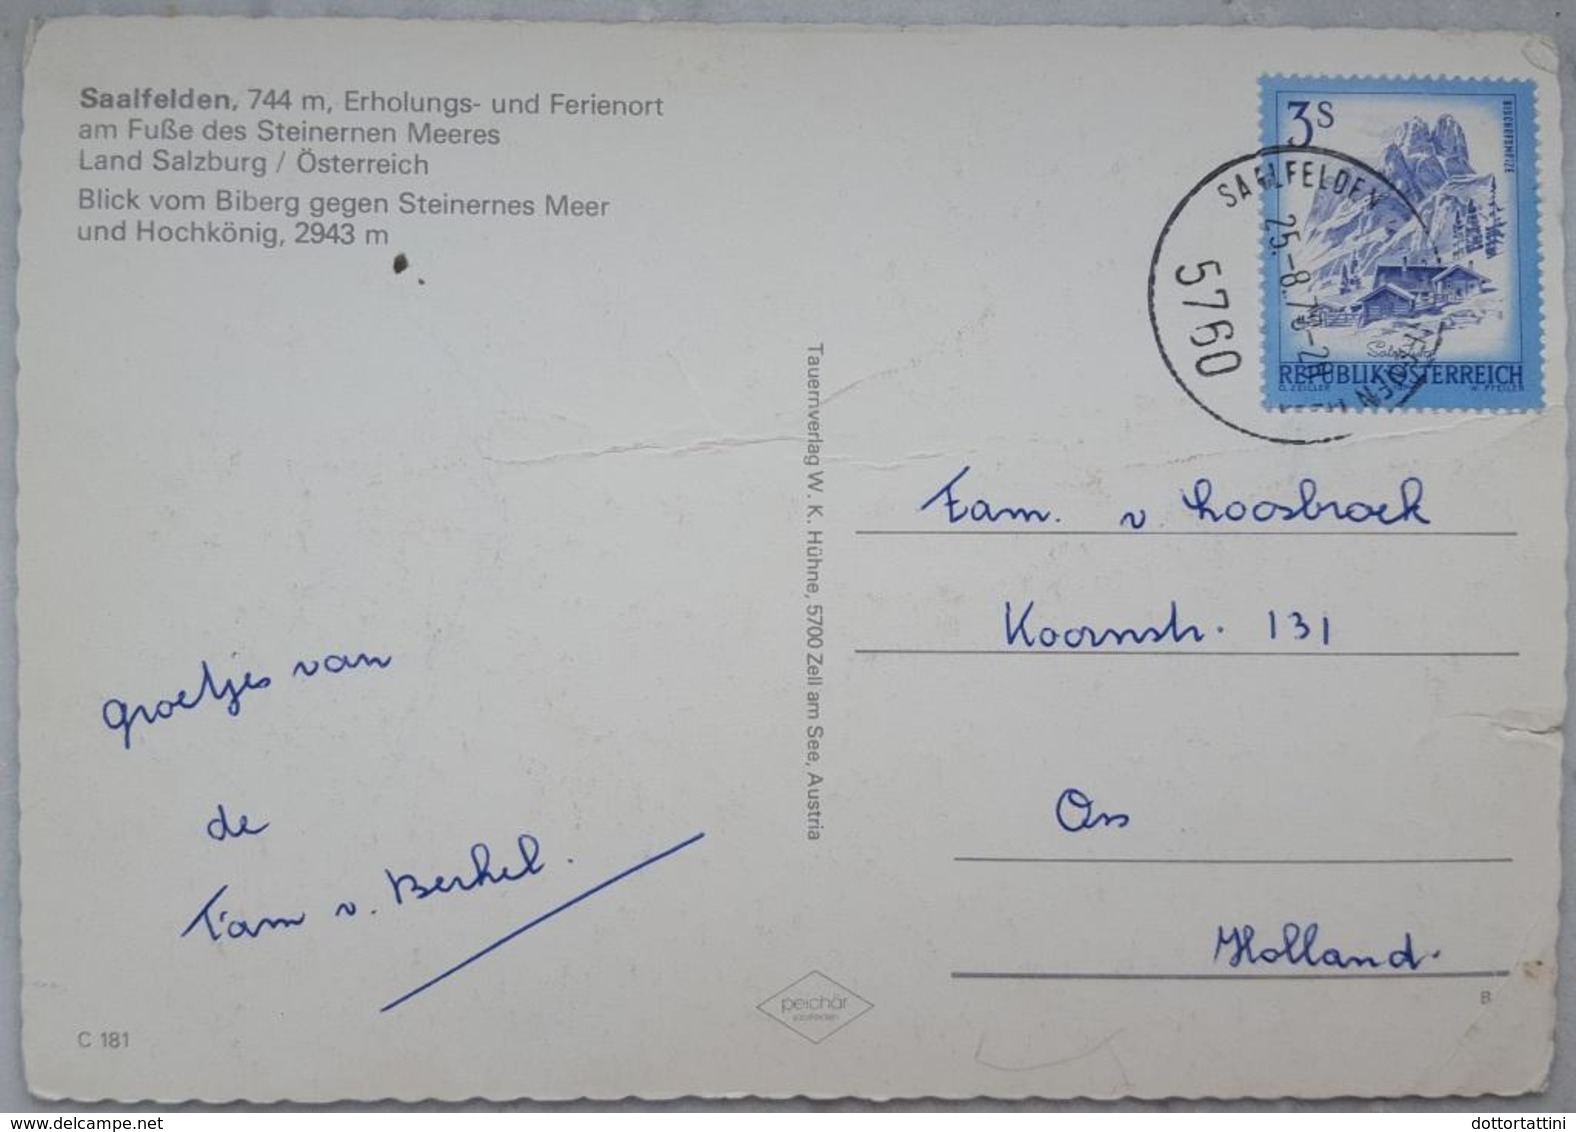 Saalfelden, 744 m, Erholungs- und Ferienort
am Fuße des Steinernen Meeres
Land Salzburg / Österreich
Blick vom Biberg gegen Steinernes Meer
und Hochkönig, 2943 m
3S
BISCHOFSMÜTZE
REPUBLIK ÖSTERREICH
O. ZEILLER
W. PFEILER
SAALFELDEN
25.-8.7
5760
Tauernverlag W. K. Hühne, 5700 Zell am See, Austria
Fam. v. Loosbroek
Koornstr. 131
Oss
Holland.
groetjes van
de
Fam v. Berkel.
peichär
C 181
B
delcampe.net
dottortattini